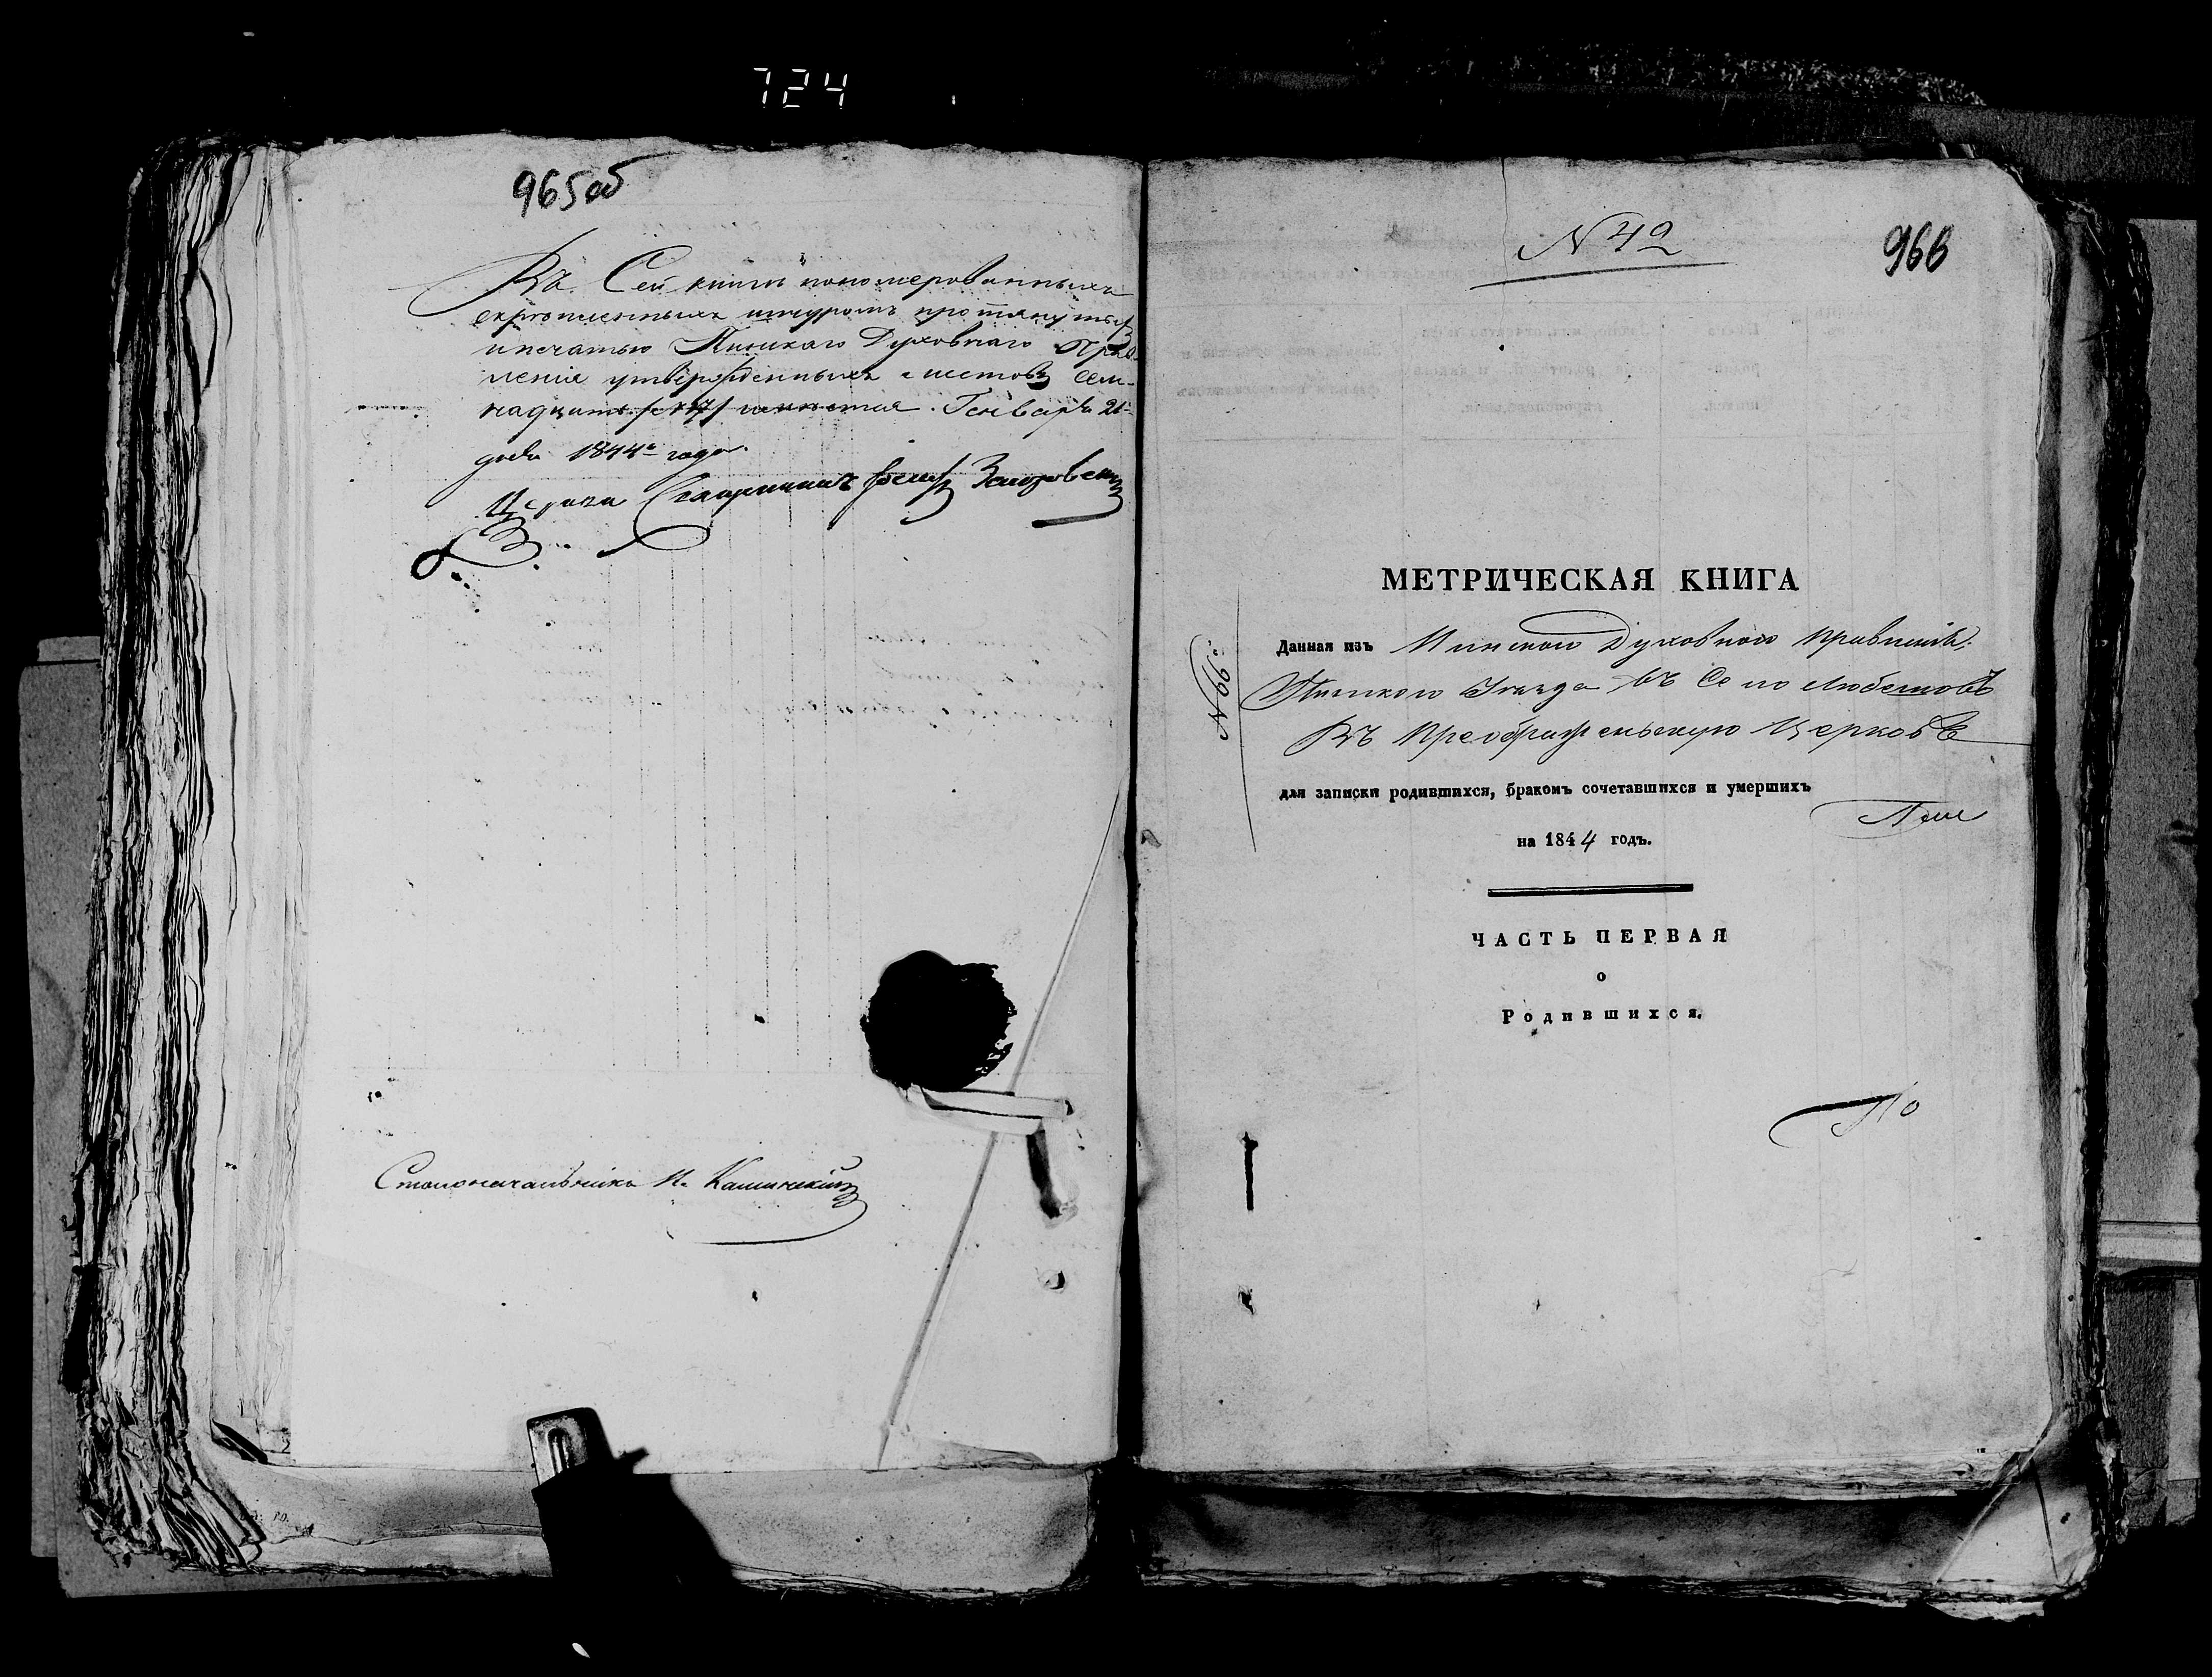 724
965об
Въ Сей книги пономерованныхъ
скрепленныхъ шнуромъ протянутыхъ
и печатью Пинскаго Духовнаго Прав-
ления утвержденныхъ листовъ сем-
надцать /:17:/ Генваря 21
дня 1844го года.
Столоначальникъ И. Калинскій
N 42
966
МЕТРИЧЕСКАЯ КНИГА
Данная изъ Пинскаго Духовного Правленія
Пинского Уезда въ Село Любешовъ
Въ Преображенскую Церковь
N 66
для записки родившихся, бракомъ сочетавшихся и умершихъ
на 1844 годъ.
ЧАСТЬ ПЕРВАЯ
о
Родившихся.
По